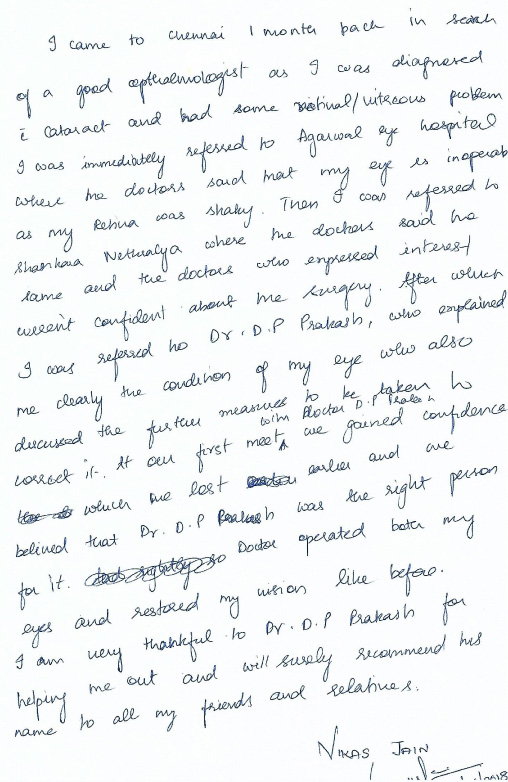 I came to chennai 1 month back in search
of a good opthalmologist as I was diagnosed
c cataract and had some retinal/vitreous problem
I was immediately referred to Agarwal eye hospital
where the doctors said that my eye is inoperab
as my Retina was shaky. Then I was referred to
Shankara Nethralya where the doctors said the
same and the doctors who expressed interest
weren't confident about the surgery. After which
I was referred to Dr. D.P Prakash, who explained
me clearly the condition of my eye who also
discussed the further measures to be taken to
with Doctor D.P Prakash
correct it. At our first meet we gained confidence
which we lost earlier and we
belived that Dr. D.P Prakash was the right person
for it. Doctor operated both my
eyes and restored my vision like before.
I am very thankful to Dr. D.P Prakash for
helping me out and will surely recommend his
name to all my friends and relatives.
VIKAS JAIN